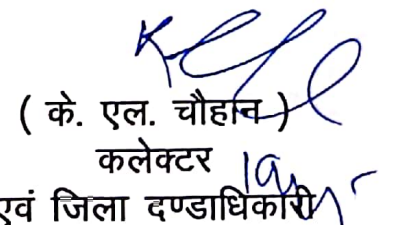 ( के. एल. चौहान )
कलेक्टर
एवं जिला दण्डाधिकारी